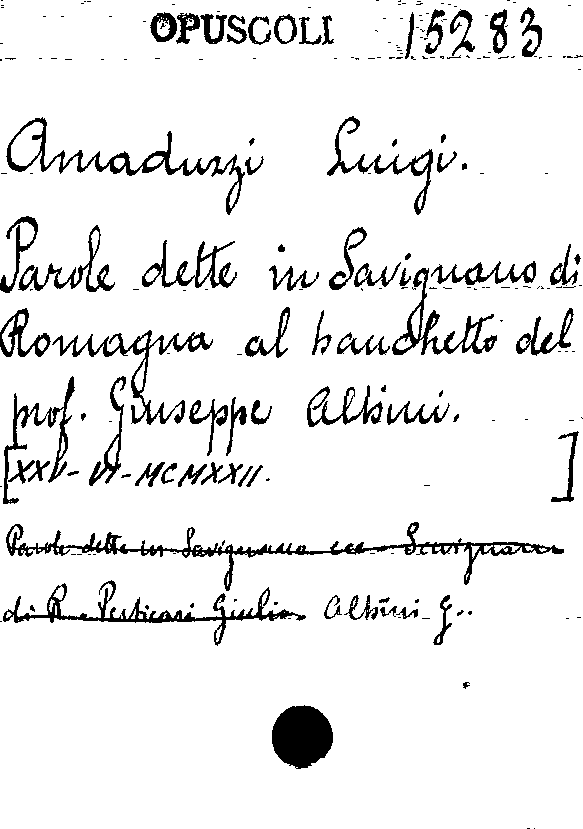 OPUSCOLI 15283
Amaduzzi Luigi.
Parole dette in Savignano di
Romagna al banchetto del
prof. Giuseppe Albini.
[XXV-VI-MCMXXII. ]
Parole dette in Savignano ecc - Savignano
di R - Perticari Giulio. Albini g..